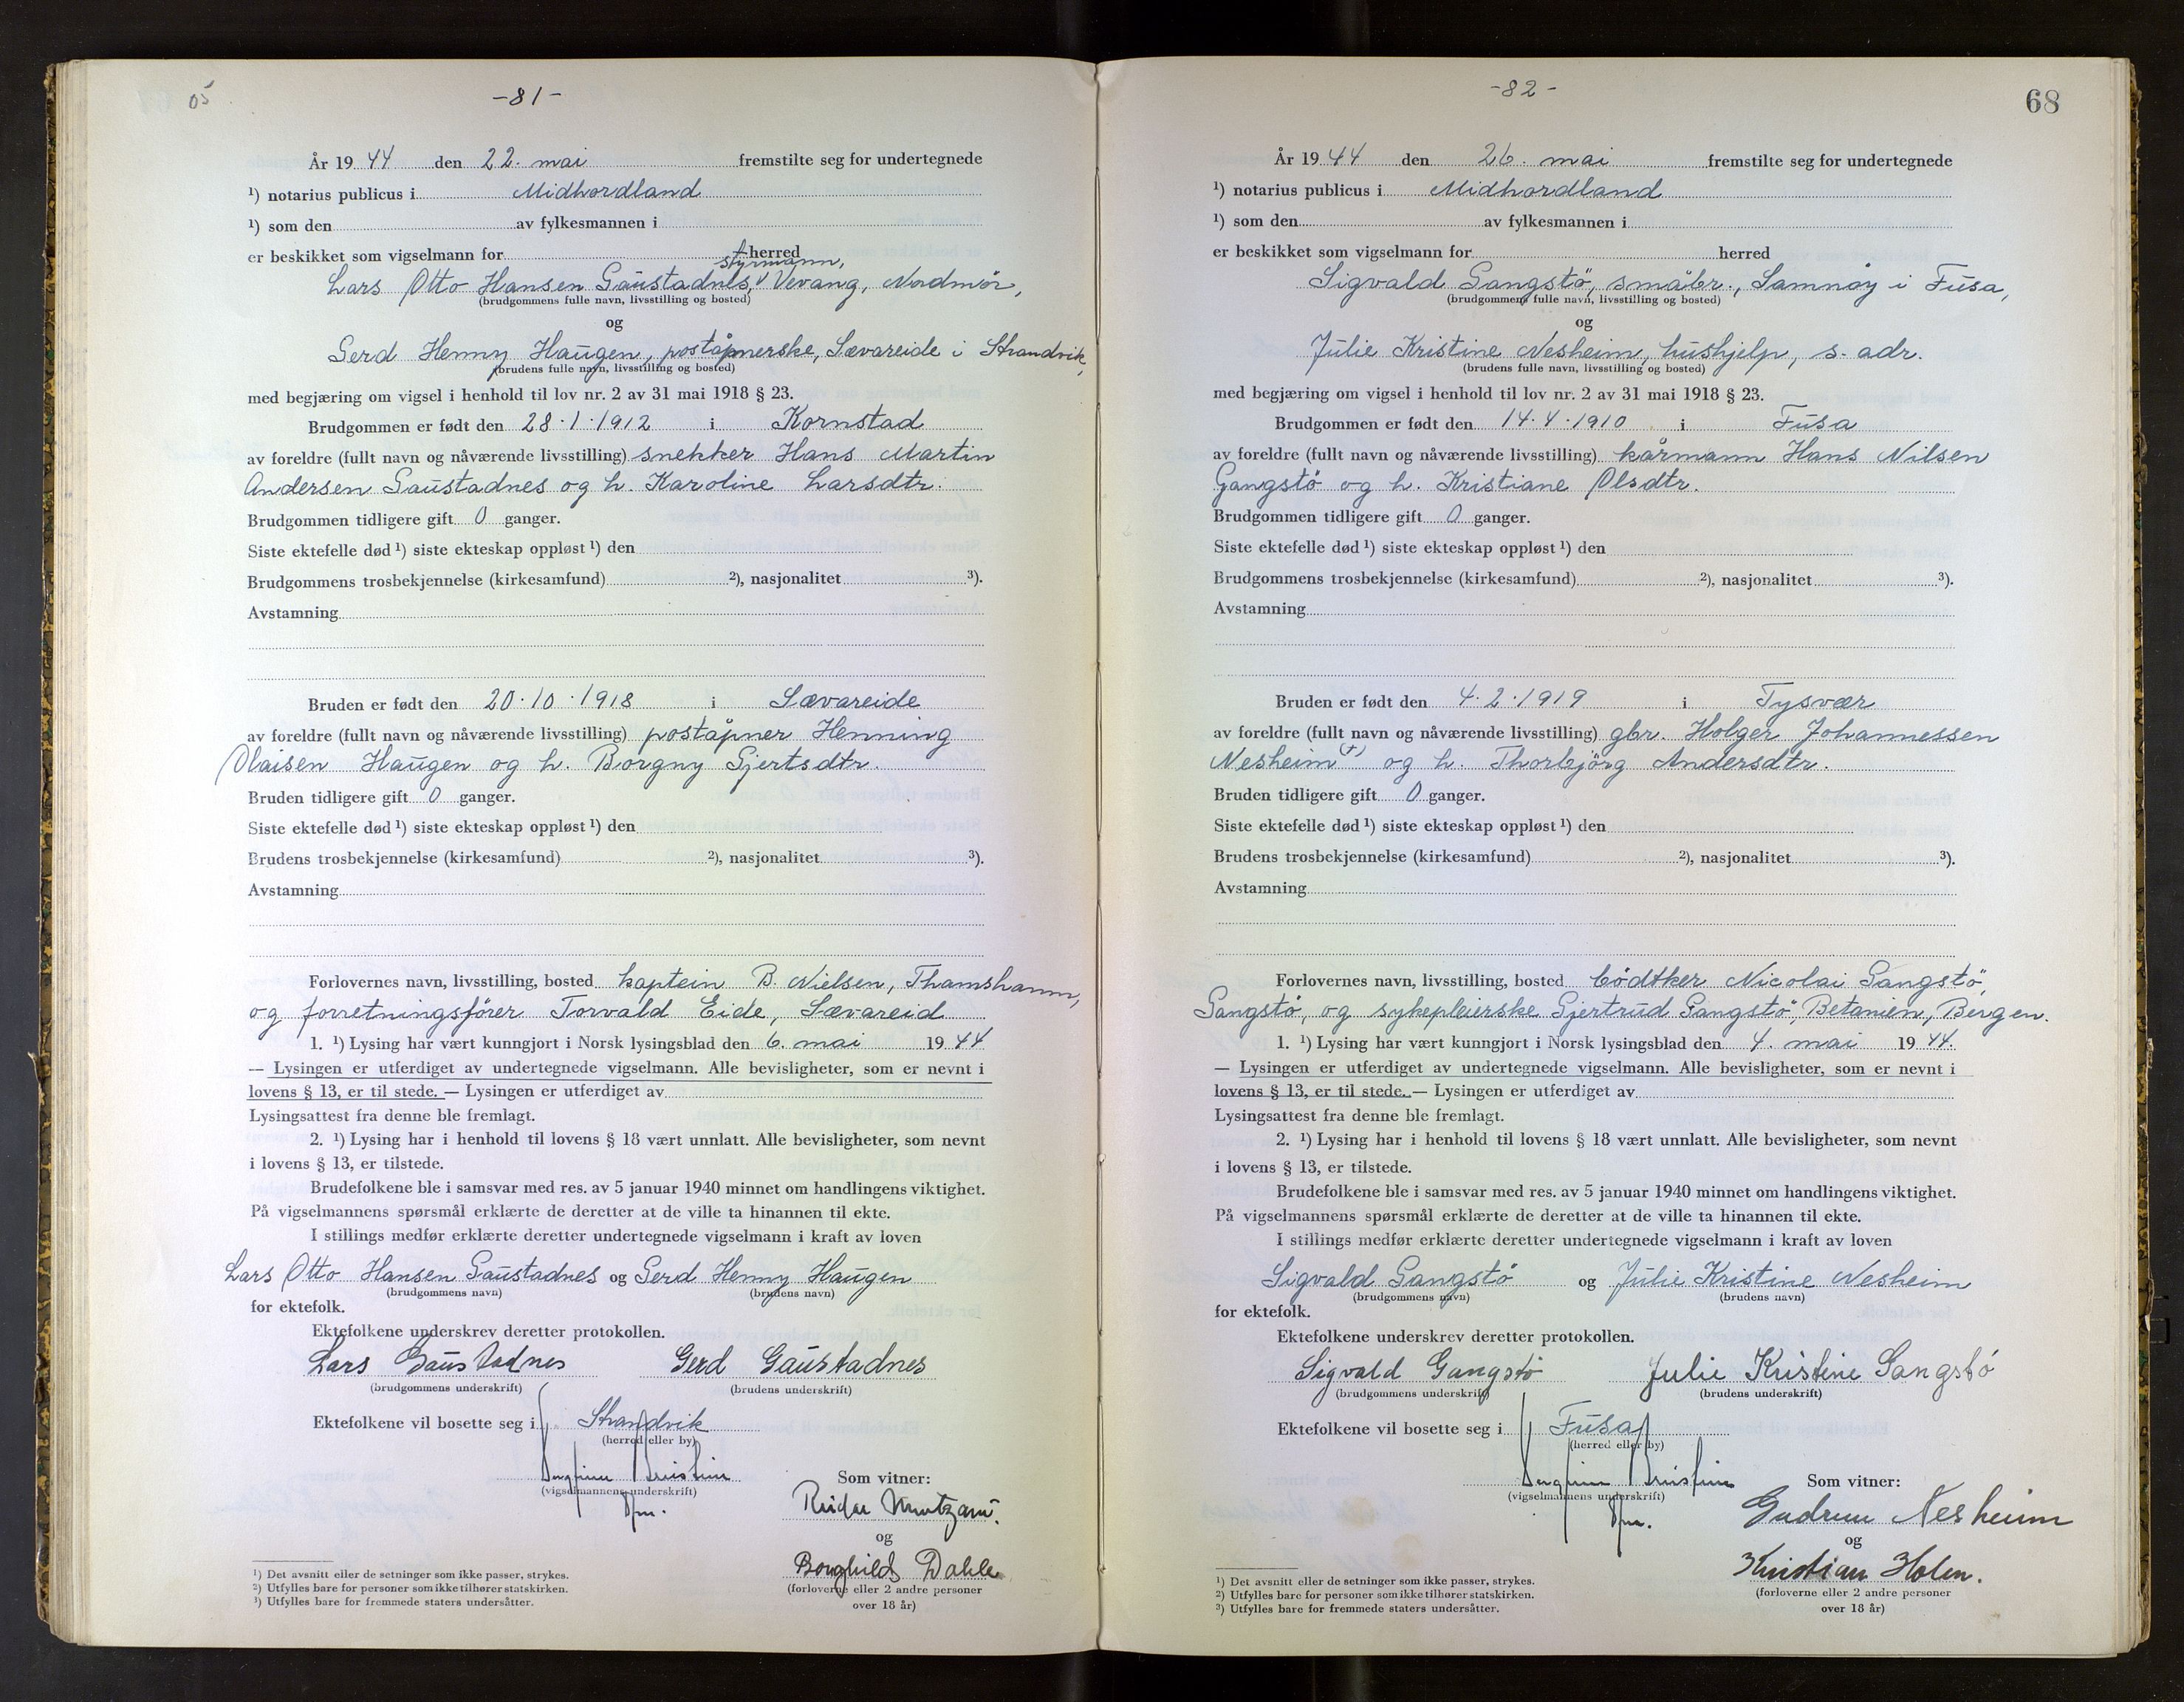 05
-81-
År 1944 den 22. mai fremstilte seg for undertegnede
¹) notarius publicus i Midhordland
¹) som den av fylkesmannen i
er beskikket som vigselmann for herred
styrmann,
Lars Otto Hansen Gaustadnes, Vevang, Nordmör,
(brudgommens fulle navn, livsstilling og bosted)
og
Gerd Henny Haugen, poståpnerske, Sævareide i Strandvik,
(brudens fulle navn, livsstilling og bosted)
med begjæring om vigsel i henhold til lov nr. 2 av 31 mai 1918 § 23.
Brudgommen er født den 28.1.1912 i Kornstad
av foreldre (fullt navn og nåværende livsstilling) snekker Hans Martin
Andersen Gaustadnes og h. Karoline Larsdtr.
Brudgommen tidligere gift 0 ganger.
Siste ektefelle død ¹) siste ekteskap oppløst ¹) den
Brudgommens trosbekjennelse (kirkesamfund) ²), nasjonalitet ³).
Avstamning
Bruden er født den 20.10.1918 i Sævareide
av foreldre (fullt navn og nåværende livsstilling) poståpner Henning
Olaisen Haugen og h. Borgny Gjertsdtr.
Bruden tidligere gift 0 ganger.
Siste ektefelle død ¹) siste ekteskap oppløst ¹) den
Brudens trosbekjennelse (kirkesamfund) ²), nasjonalitet ³).
Avstamning
Forlovernes navn, livsstilling, bosted kaptein B. Nielsen, Thamshamn,
og forretningsfører Torvald Eide, Sævareid
1. ¹) Lysing har vært kunngjort i Norsk lysingsblad den 6. mai 1944
— Lysingen er utferdiget av undertegnede vigselmann. Alle bevisligheter, som er nevnt i
lovens § 13, er til stede. — Lysingen er utferdiget av
Lysingsattest fra denne ble fremlagt.
2. ¹) Lysing har i henhold til lovens § 18 vært unnlatt. Alle bevisligheter, som nevnt
i lovens § 13, er tilstede.
Brudefolkene ble i samsvar med res. av 5 januar 1940 minnet om handlingens viktighet.
På vigselmannens spørsmål erklærte de deretter at de ville ta hinannen til ekte.
I stillings medfør erklærte deretter undertegnede vigselmann i kraft av loven
Lars Otto Hansen Gaustadnes og Gerd Henny Haugen
(brudgommens navn) (brudens navn)
for ektefolk.
Ektefolkene underskrev deretter protokollen.
Lars Gaustadnes Gerd Gaustadnes
(brudgommens underskrift) (brudens underskrift)
Ektefolkene vil bosette seg i Strandvik
(herred eller by)
(vigselmannens underskrift)
Som vitner:
Reidar
og
Borghild Dahle
(forloverne eller 2 andre personer
over 18 år)
¹) Det avsnitt eller de setninger som ikke passer, strykes.
²) Utfylles bare for personer som ikke tilhører statskirken.
³) Utfylles bare for fremmede staters undersåtter.
-82-
68
År 1944 den 26. mai fremstilte seg for undertegnede
¹) notarius publicus i Midhordland
¹) som den av fylkesmannen i
er beskikket som vigselmann for herred
Sigvald Gangstö, småbr., Samnöy i Fusa,
(brudgommens fulle navn, livsstilling og bosted)
og
Julie Kristine Nesheim, hushjelp, s. adr.
(brudens fulle navn, livsstilling og bosted)
med begjæring om vigsel i henhold til lov nr. 2 av 31 mai 1918 § 23.
Brudgommen er født den 14.4.1910 i Fusa
av foreldre (fullt navn og nåværende livsstilling) kårmann Hans Nilsen
Gangstö og h. Kristiane Olsdtr.
Brudgommen tidligere gift 0 ganger.
Siste ektefelle død ¹) siste ekteskap oppløst ¹) den
Brudgommens trosbekjennelse (kirkesamfund) ²), nasjonalitet ³).
Avstamning
Bruden er født den 4.2.1919 i Tysvær
av foreldre (fullt navn og nåværende livsstilling) gbr. Holger Johannessen
Nesheim (+) og h. Thorbjörg Andersdtr.
Bruden tidligere gift 0 ganger.
Siste ektefelle død ¹) siste ekteskap oppløst ¹) den
Brudens trosbekjennelse (kirkesamfund) ²), nasjonalitet ³).
Avstamning
Forlovernes navn, livsstilling, bosted bödtker Nicolai Gangstö,
Gangstö, og sykepleierske Gjertrud Gangstö, Betanien, Bergen.
1. ¹) Lysing har vært kunngjort i Norsk lysingsblad den 4. mai 1944.
— Lysingen er utferdiget av undertegnede vigselmann. Alle bevisligheter, som er nevnt i
lovens § 13, er til stede. — Lysingen er utferdiget av
Lysingsattest fra denne ble fremlagt.
2. ¹) Lysing har i henhold til lovens § 18 vært unnlatt. Alle bevisligheter, som nevnt
i lovens § 13, er tilstede.
Brudefolkene ble i samsvar med res. av 5 januar 1940 minnet om handlingens viktighet.
På vigselmannens spørsmål erklærte de deretter at de ville ta hinannen til ekte.
I stillings medfør erklærte deretter undertegnede vigselmann i kraft av loven
Sigvald Gangstö og Julie Kristine Nesheim
(brudgommens navn) (brudens navn)
for ektefolk.
Ektefolkene underskrev deretter protokollen.
Sigvald Gangstö Julie Kristine Gangstö
(brudgommens underskrift) (brudens underskrift)
Ektefolkene vil bosette seg i Fusa
(herred eller by)
(vigselmannens underskrift)
Som vitner:
Gudrun Nesheim
og
Kristian Holm.
(forloverne eller 2 andre personer
over 18 år)
¹) Det avsnitt eller de setninger som ikke passer, strykes.
²) Utfylles bare for personer som ikke tilhører statskirken.
³) Utfylles bare for fremmede staters undersåtter.